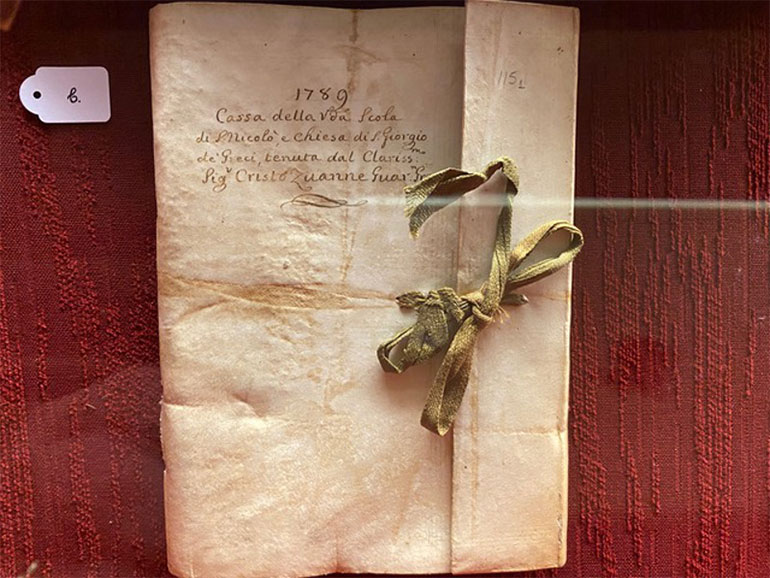 6.
1151
1789
Cassa della Vda Scola
di S Nicolò, e Chiesa di S Giorgio
de' Greci, tenuta dal Clariss:mo
Sigr Cristo Zuanne